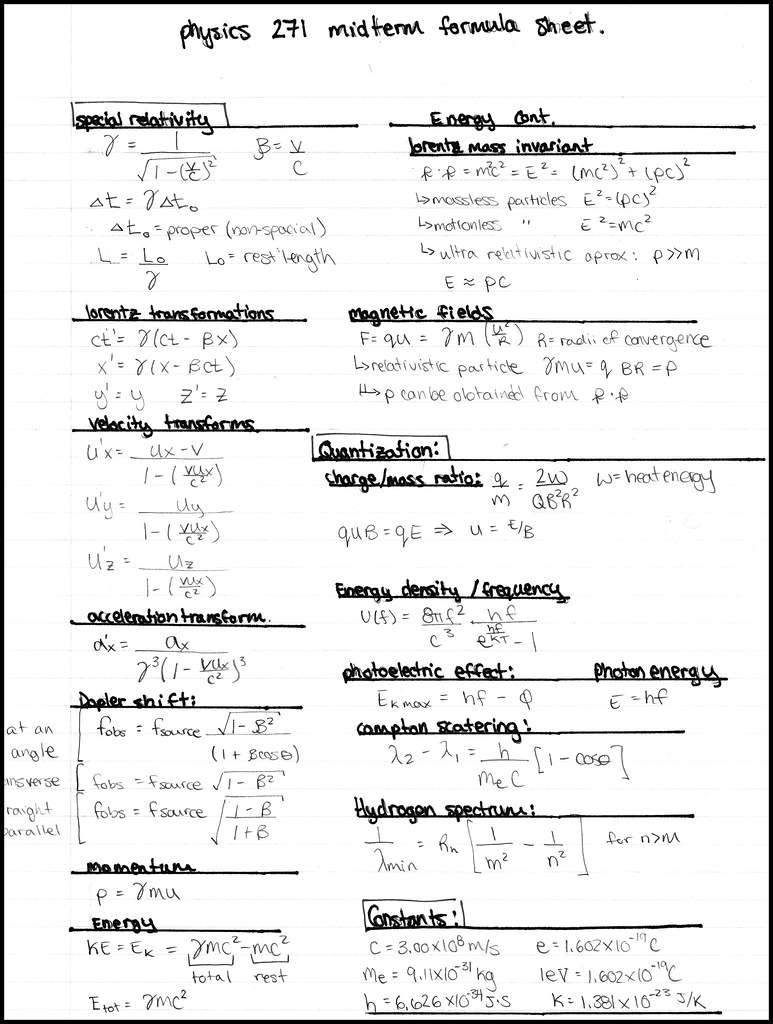 physics 271 midterm formula sheet.
special relativity
γ = 1 / √(1-(v/c)²)   β = v/c
Δt = γΔt₀
Δt₀ = proper (non-spacial)
L = L₀/γ   L₀ = rest length
lorentz transformations
ct' = γ(ct - βx)
x' = γ(x - βct)
y' = y   z' = z
velocity transforms
u'x = (ux - v) / (1-(vux/c²))
u'y = uy / (1-(vux/c²))
u'z = uz / (1-(vux/c²))
acceleration transform.
a'x = ax / (γ³(1-vux/c²)³)
Dopler shift:
at an angle [ fobs = fsource √(1-β²) / (1+βcosθ)
[ fobs = fsource √(1-β²)
parallel [ fobs = fsource √((1-β)/(1+β))
momentum
p = γmu
Energy
KE = EK = γmc² - mc²
total   rest
Etot = γmc²
Energy cont.
lorentz mass invariant
p·p = m²c² = E² = (mc²)² + (pc)²
↳ massless particles E² = (pc)²
↳ motionless " E² = mc²
↳ ultra relitivistic aprox: p>>m
E ≈ pc
magnetic fields
F = qu = γm (u²/R)   R = radii of convergence
↳ relativistic particle   γmu = q BR = p
↳ p can be obtained from p·p
Quantization:
charge/mass ratio: q/m = 2W/QB²R²   W = heat energy
quB = qE ⇒ u = E/B
Energy density / frequency
U(f) = 8πf²/c³ · hf/(e^(hf/kT) - 1)
photoelectric effect:   photon energy
EK max = hf - φ   E = hf
compton scatering:
λ₂ - λ₁ = h/(mec) [1 - cosθ]
Hydrogen spectrum:
1/λmin = Rn [1/m² - 1/n²]   for n>m
Constants:
c = 3.00×10⁸ m/s   e = 1.602×10⁻¹⁹ C
me = 9.11×10⁻³¹ kg   1eV = 1.602×10⁻¹⁹ C
h = 6.626×10⁻³⁴ J·S   k = 1.381×10⁻²³ J/K